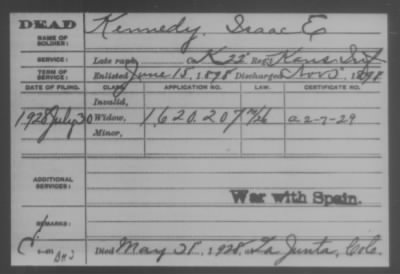 DEAD
NAME OF SOLDIER: Kennedy, Isaac E
SERVICE: Late rank, Co K 22" Reg't Kans Inf
TERM OF SERVICE: Enlisted June 15, 1898 Discharged Nov 3, 1898
DATE OF FILING. CLASS. APPLICATION NO. LAW. CERTIFICATE NO.
Invalid,
1928 July 30 Widow, 1620207 a-2-7-29
Minor,
ADDITIONAL SERVICES:
War with Spain.
REMARKS:
C
Died May 31, 1928, La Junta, Colo.